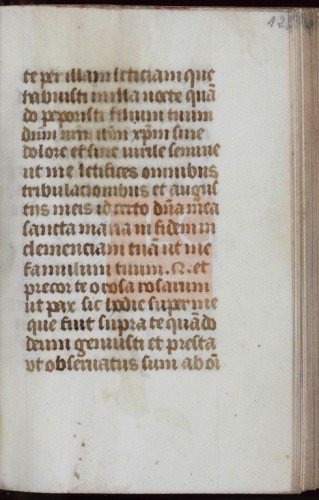 te per illam leticiam que
habuisti in illa nocte quã
do peperisti filium tuum
dũm nrm ihm xpm sine
dolore et sine virile semine
ut me letifices omnibus
tribulacionibus et angus
tiis meis id certo dña mea
sancta maria in fidem in
clemenciam tuã ut me
famulum tuum .N. et
precor te o rosa rosarum
ut pax sic hodie super me
que fuit supra te quãdo
deum genuisti et presta
vt obseruatus sum ab oĩ